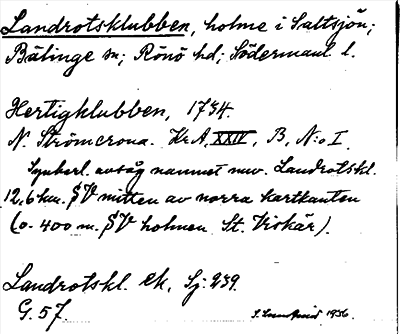 Landrotsklubben, holme i Saltsjön;
Bälinge sn; Rönö hd; Södermanl. l.
Hertigklubben, 1734.
N. Strömcrona. Kr.A, XXIV, B, N:o I.
Synbarl. avsåg namnet nuv. Landrotskl.
12,6 km. SV mitten av norra kartkanten
(o. 400 m. SV holmen St. Viskär).
Landrotskl. ek, Sj. 239.
G. 57.
1936.